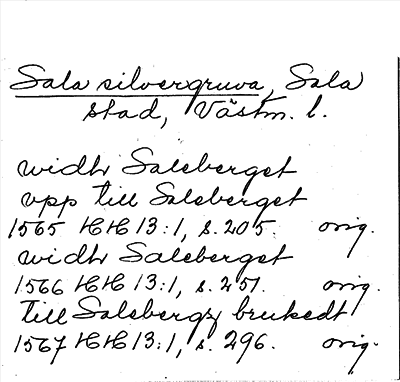 Sala silvergruva, Sala
stad, Västm. l.
widh Saleberget
vpp till Saleberget
1565 HH 13:1, s. 205. orig.
widh Saleberget
1566 HH 13:1, s. 251. orig.
till Salebergz brukedt
1567 HH 13:1, s. 296. orig.